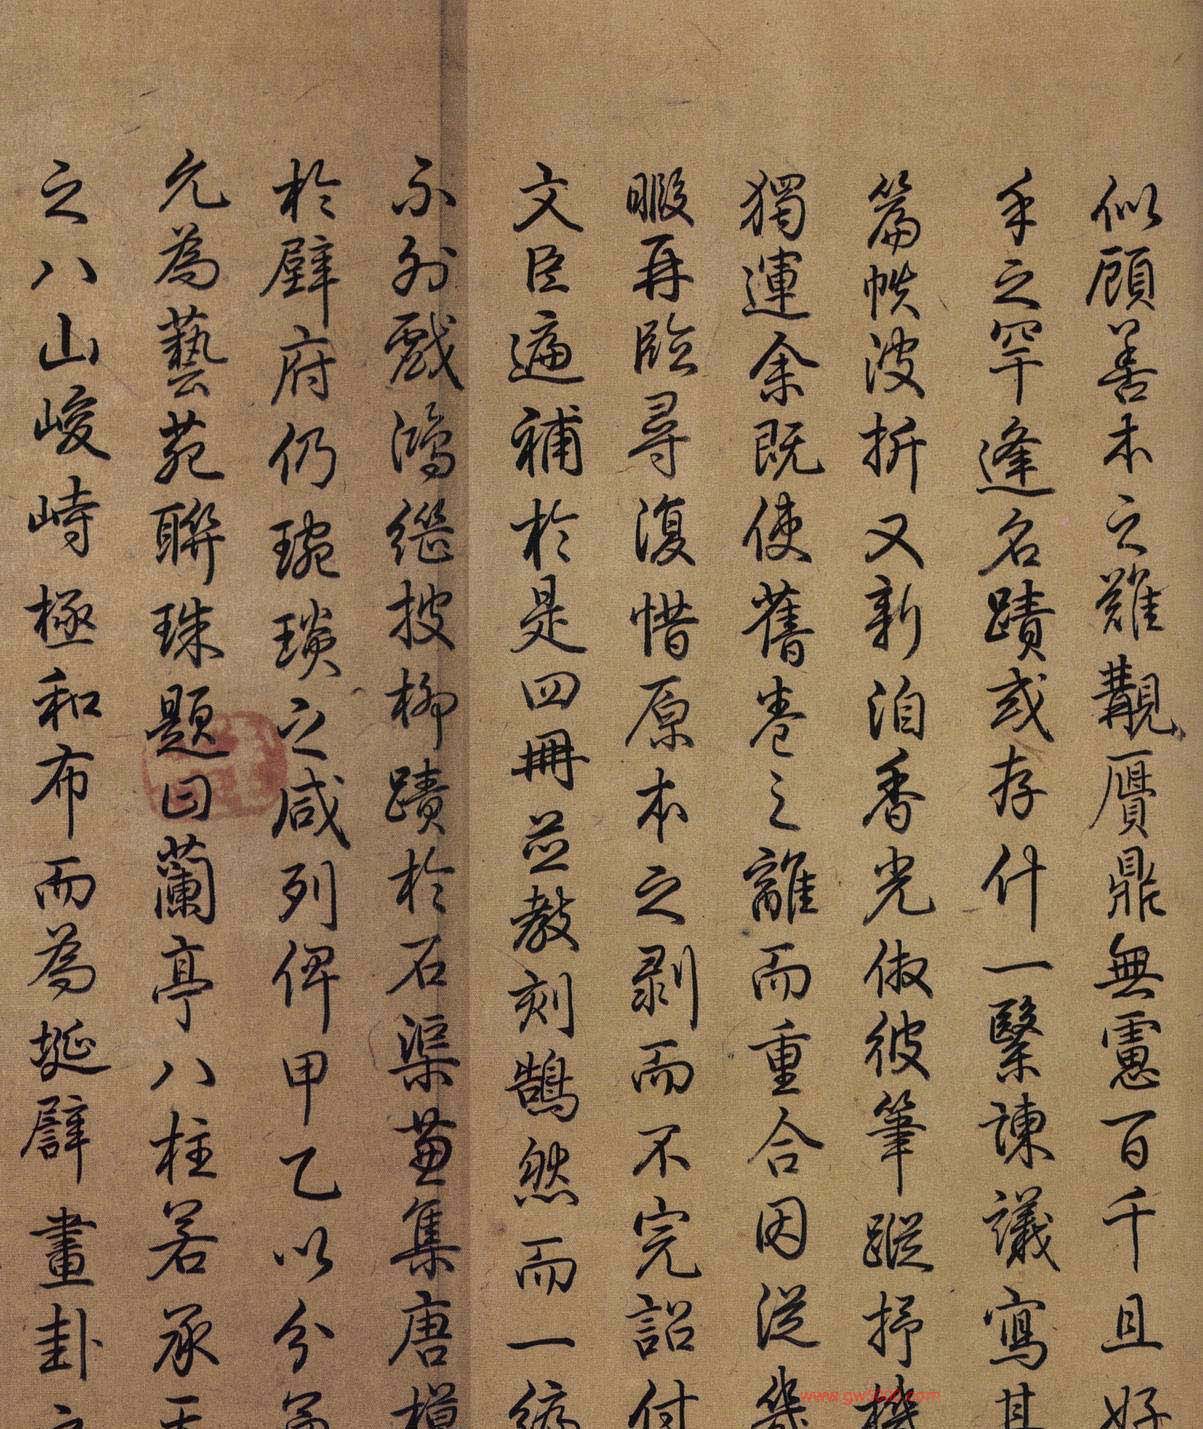 似顧善本之難覯贋鼎無慮百千且好
手之罕逢名蹟或存什一緊諫議寫其
篇帙波折又新洎香光倣彼筆蹤抒機
獨運余既使舊卷之離而重合因從幾
暇再臨尋復惜原本之剥而不完詔付
文臣遍補於是四冊並教刻鵠然而一編
不列戲鴻繼披柳蹟於石渠兼集唐模
於壁府仍琬琰之咸列俾甲乙以分
允為藝苑聯珠題曰蘭亭八柱若承天
之八山峻峙極和布而為埏壁畫卦